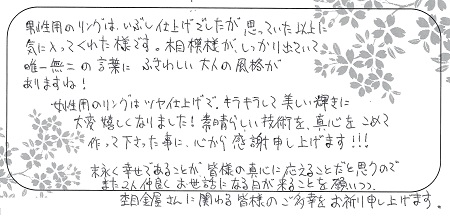 男性用のリングは、いぶし仕上げでしたが 思っていた以上に
気に入ってくれた様です。木目模様が、しっかり出ていて
唯一無二の言葉に ふさわしい大人の風格が
ありますね！
女性用のリングはツヤ仕上げで、キラキラして美しい輝きに
大変嬉しくなりました！素晴らしい技術を、真心をこめて
作って下さった事に、心から感謝申し上げます！！！
末永く幸せであることが皆様の真心に応えることだと思うので
また二人仲良くお世話になる日が来ることを願いつつ、
杢目金屋さんに関わる皆様のご多幸をお祈り申し上げます。